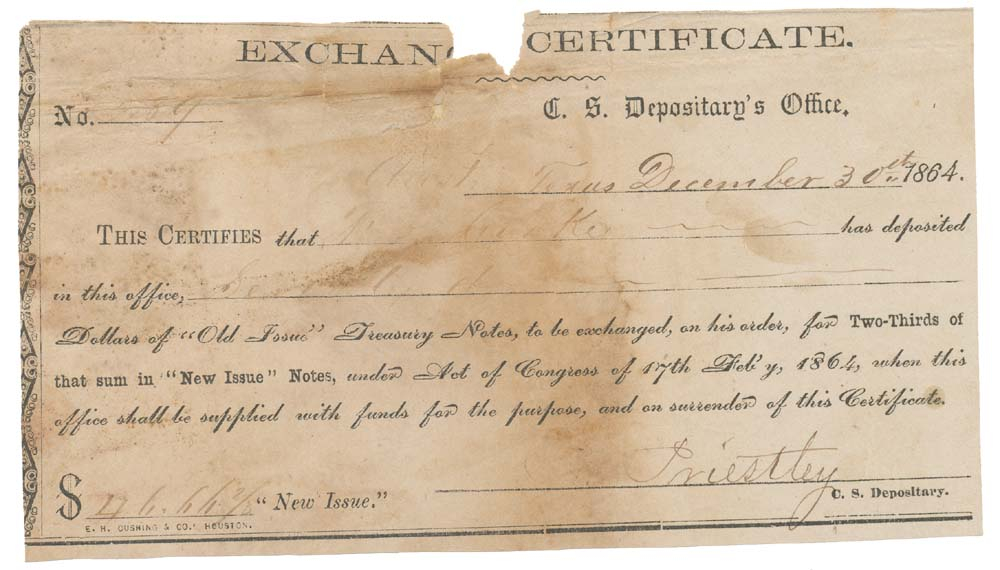 EXCHAN CERTIFICATE.
No. 9
C. S. Depositary's Office,
Texas December 30th 1864.
THIS CERTIFIES that has deposited
in this office,
Dollars of "Old Issue" Treasury Notes, to be exchanged, on his order, for Two-Thirds of
that sum in "New Issue" Notes, under Act of Congress of 17th Feb'y, 1864, when this
office shall be supplied with funds for the purpose, and on surrender of this Certificate.
Priestley
$ 46.66 2/3 "New Issue."
C. S. Depositary.
E. H. CUSHING & CO., HOUSTON.